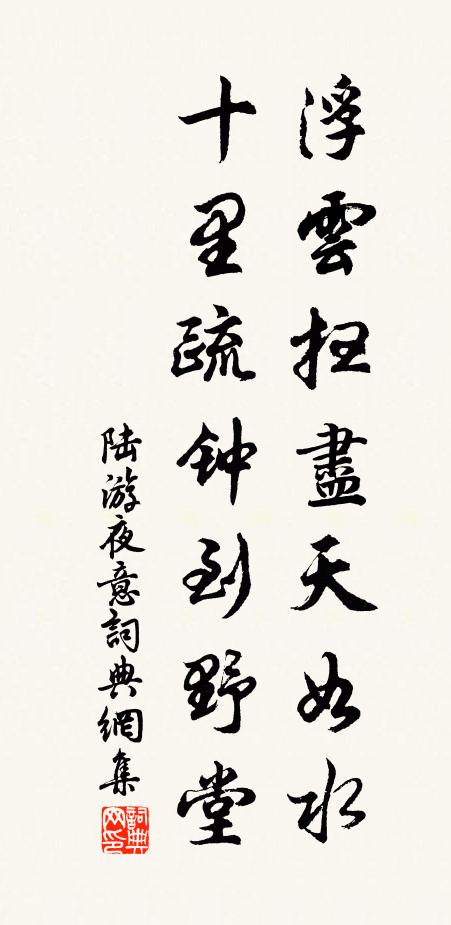 浮雲扫盡天如水
十里疏钟到野堂
陆游夜意詞典網集
詞典网印